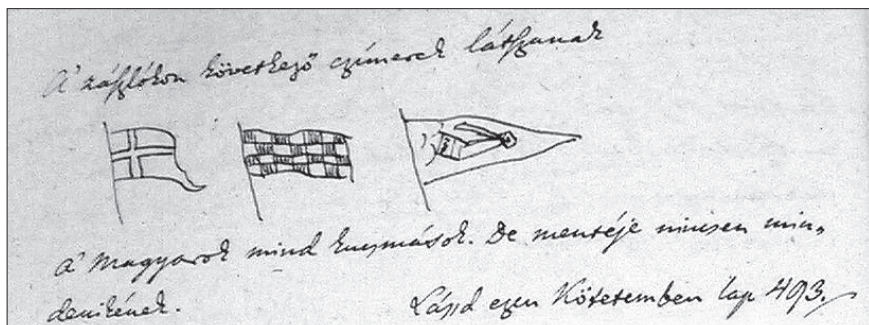 A' záſzlókon következő czímerek látſzanak
A' Magyarok mind kucsmások. De mentéje nincsen min-
denikének. Lásd ezen Kötetemben lap 493.